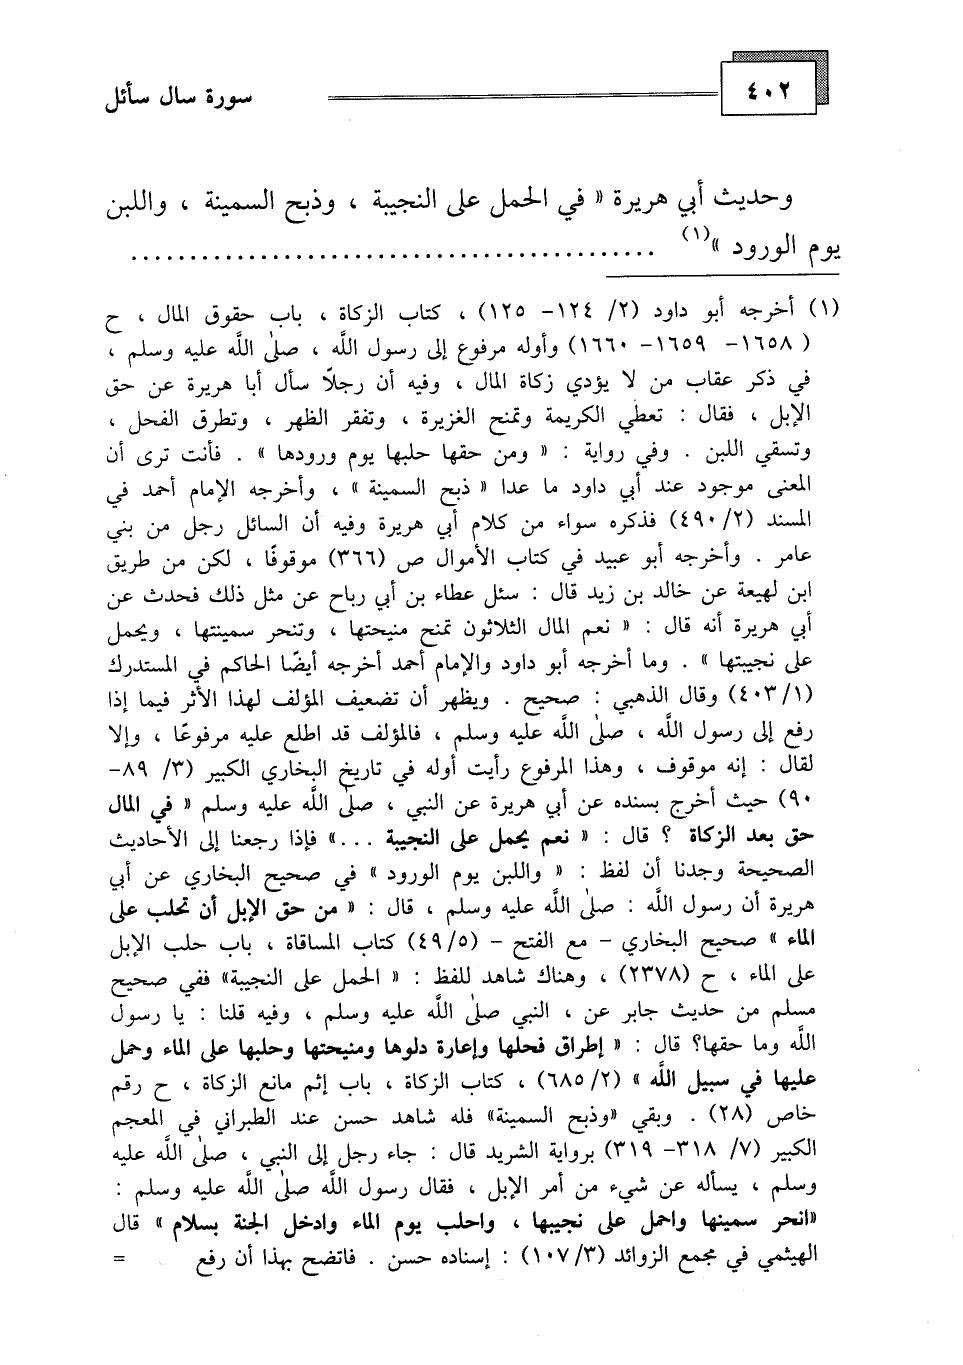 ٤٠٢
سورة سال سأئل
وحديث أبي هريرة « في الحمل على النجيبة ، وذبح السمينة ، واللبن
يوم الورود »(١) .............................................
(١) أخرجه أبو داود (٢/ ١٢٤– ١٢٥) ، كتاب الزكاة ، باب حقوق المال ، ح
( ١٦٥٨– ١٦٥٩– ١٦٦٠) وأوله مرفوع إلى رسول اللَّه ، صلى اللَّه عليه وسلم ،
في ذكر عقاب من لا يؤدي زكاة المال ، وفيه أن رجلاً سأل أبا هريرة عن حق
الإبل ، فقال : تعطي الكريمة وتمنح الغزيرة ، وتفقر الظهر ، وتطرق الفحل ،
وتسقي اللبن . وفي رواية : « ومن حقها حلبها يوم ورودها » . فأنت ترى أن
المعنى موجود عند أبي داود ما عدا « ذبح السمينة » ، وأخرجه الإمام أحمد في
المسند (٤٩٠/٢) فذكره سواء من كلام أبي هريرة وفيه أن السائل رجل من بني
عامر . وأخرجه أبو عبيد في كتاب الأموال ص (٣٦٦) موقوفًا ، لكن من طريق
ابن لهيعة عن خالد بن زيد قال : سئل عطاء بن أبي رباح عن مثل ذلك فحدث عن
أبي هريرة أنه قال : « نعم المال الثلاثون تمنح منيحتها ، وتنحر سمينتها ، ويحمل
على نجيبتها » . وما أخرجه أبو داود والإمام أحمد أخرجه أيضًا الحاكم في المستدرك
(٤٠٣/١) وقال الذهبي : صحيح . ويظهر أن تضعيف المؤلف لهذا الأثر فيما إذا
رفع إلى رسول اللَّه ، صلى اللَّه عليه وسلم ، فالمؤلف قد اطلع عليه مرفوعًا ، وإلا
لقال : إنه موقوف ، وهذا المرفوع رأيت أوله في تاريخ البخاري الكبير (٣/ ٨٩–
٩٠) حيث أخرج بسنده عن أبي هريرة عن النبي ، صلى اللَّه عليه وسلم « في المال
حق بعد الزكاة ؟ قال : « نعم يحمل على النجيبة ...» فإذا رجعنا إلى الأحاديث
الصحيحة وجدنا أن لفظ : « واللبن يوم الورود » في صحيح البخاري عن أبي
هريرة أن رسول اللَّه : صلى اللَّه عليه وسلم ، قال : « من حق الإبل أن تحلب على
الماء » صحيح البخاري – مع الفتح – (٤٩/٥) كتاب المساقاة ، باب حلب الإبل
على الماء ، ح (٢٣٧٨) ، وهناك شاهد للفظ : « الحمل على النجيبة» ففي صحيح
مسلم من حديث جابر عن ، النبي صلى اللَّه عليه وسلم ، وفيه قلنا : يا رسول
اللَّه وما حقها؟ قال : « إطراق فحلها وإعارة دلوها ومنيحتها وحلبها على الماء وحمل
عليها في سبيل اللَّه » (٦٨٥/٢) ، كتاب الزكاة ، باب إثم مانع الزكاة ، ح رقم
خاص (٢٨) . وبقي «وذبح السمينة» فله شاهد حسن عند الطبراني في المعجم
الكبير (٧/ ٣١٨– ٣١٩) برواية الشريد قال : جاء رجل إلى النبي ، صلى اللَّه عليه
وسلم ، يسأله عن شيء من أمر الإبل ، فقال رسول اللَّه صلى اللَّه عليه وسلم :
«انحر سمينها واحمل على نجيبها ، واحلب يوم الماء وادخل الجنة بسلام » قال
الهيثمي في مجمع الزوائد (١٠٧/٣) : إسناده حسن . فاتضح بهذا أن رفع =